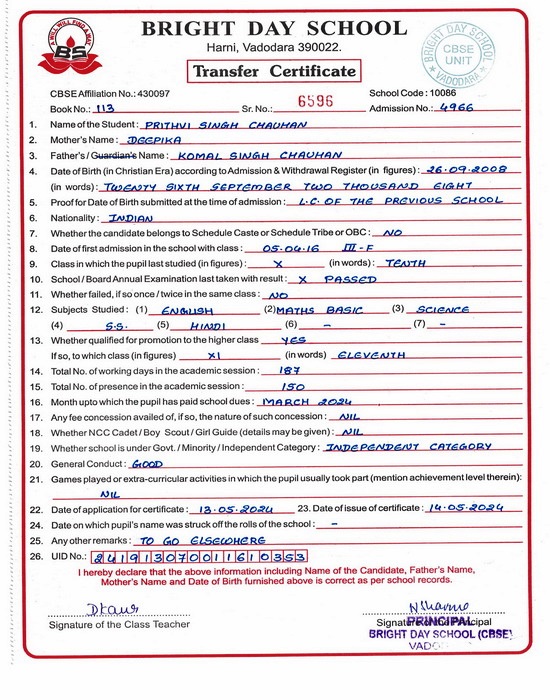 A WILL WILL FIND A WAY
BS
BRIGHT DAY SCHOOL
Harni, Vadodara 390022.
BRIGHT DAY SCHOOL
CBSE
UNIT
VADODARA
Transfer Certificate
CBSE Affiliation No.: 430097 School Code : 10086
Book No.: 113 Sr. No.: 6596 Admission No.: 4966
1. Name of the Student : PRITHVI SINGH CHAUHAN
2. Mother's Name : DEEPIKA
3. Father's / Guardian's Name : KOMAL SINGH CHAUHAN
4. Date of Birth (in Christian Era) according to Admission & Withdrawal Register (in figures) : 26.09.2008
(in words) : TWENTY SIXTH SEPTEMBER TWO THOUSAND EIGHT
5. Proof for Date of Birth submitted at the time of admission : L.C. OF THE PREVIOUS SCHOOL
6. Nationality : INDIAN
7. Whether the candidate belongs to Schedule Caste or Schedule Tribe or OBC : NO
8. Date of first admission in the school with class : 05.04.16 III-F
9. Class in which the pupil last studied (in figures) : X (in words) : TENTH
10. School / Board Annual Examination last taken with result : X PASSED
11. Whether failed, if so once / twice in the same class : NO
12. Subjects Studied : (1) ENGLISH (2) MATHS BASIC (3) SCIENCE
(4) S.S. (5) HINDI (6) – (7) –
13. Whether qualified for promotion to the higher class YES
If so, to which class (in figures) XI (in words) ELEVENTH
14. Total No. of working days in the academic session : 187
15. Total No. of presence in the academic session : 150
16. Month upto which the pupil has paid school dues : MARCH 2024
17. Any fee concession availed of, if so, the nature of such concession : NIL
18. Whether NCC Cadet / Boy Scout / Girl Guide (details may be given) : NIL
19. Whether school is under Govt. / Minority / Independent Category : INDEPENDENT CATEGORY
20. General Conduct : GOOD
21. Games played or extra-curricular activities in which the pupil usually took part (mention achievement level therein) :
NIL
22. Date of application for certificate : 13.05.2024 23. Date of issue of certificate : 14.05.2024
24. Date on which pupil's name was struck off the rolls of the school : –
25. Any other remarks : TO GO ELSEWHERE
26. UID No.: 241913070011610353
I hereby declare that the above information including Name of the Candidate, Father's Name,
Mother's Name and Date of Birth furnished above is correct as per school records.
Signature of the Class Teacher
PRINCIPAL
BRIGHT DAY SCHOOL (CBSE)